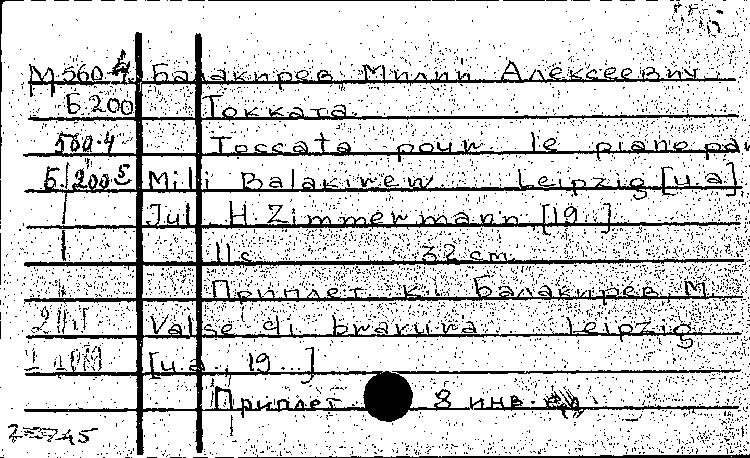 М 560-4 Балакирев Милий Алексеевич
Б 200 Токката.
560-4 Toccata pour le piano par
Б/200 5 Mili Balakirew Leipzig [u.a]
Jul. H. Zimmermann [19..]
11 s. 32 cm.
Приплет к.: Балакирев М.
Valse di bravura. Leipzig
[u.a, 19...]
Приплет. 8 инв.